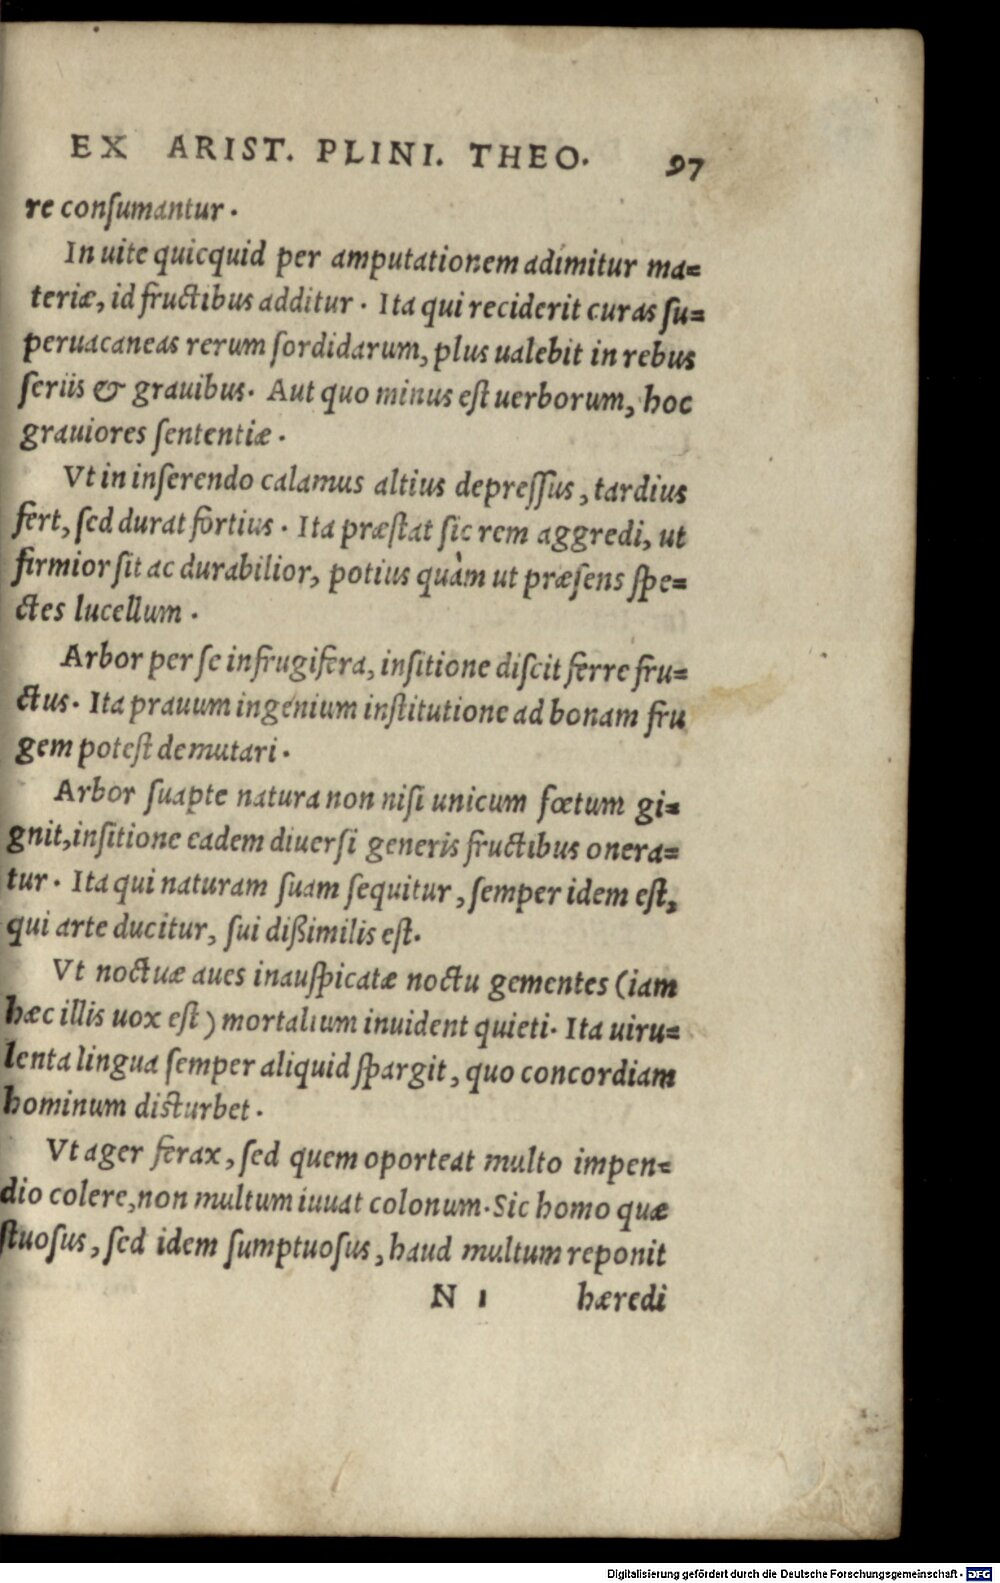 EX ARIST. PLINI. THEO. 97
re conſumantur.
In uite quicquid per amputationem adimitur ma=
teriæ, id fructibus additur. Ita qui reciderit curas ſu=
peruacaneas rerum ſordidarum, plus ualebit in rebus
ſeriis & grauibus. Aut quo minus eſt uerborum, hoc
grauiores ſententiæ.
Vt in inſerendo calamus altius depreſſus, tardius
fert, ſed durat fortius. Ita præſtat ſic rem aggredi, ut
firmior ſit ac durabilior, potius quàm ut præſens ſpe=
ctes lucellum.
Arbor per ſe infrugifera, inſitione diſcit ferre fru=
ctus. Ita prauum ingenium inſtitutione ad bonam fru
gem poteſt demutari.
Arbor ſuapte natura non niſi unicum fœtum gi=
gnit, inſitione eadem diuerſi generis fructibus onera=
tur. Ita qui naturam ſuam ſequitur, ſemper idem eſt,
qui arte ducitur, ſui dißimilis eſt.
Vt noctuæ aues inauſpicatæ noctu gementes (iam
hæc illis uox eſt) mortalium inuident quieti. Ita uiru=
lenta lingua ſemper aliquid ſpargit, quo concordiam
hominum diſturbet.
Vt ager ferax, ſed quem oporteat multo impen=
dio colere, non multum iuuat colonum. Sic homo quæ
ſtuoſus, ſed idem ſumptuoſus, haud multum reponit
N 1 hæredi
Digitalisierung gefördert durch die Deutsche Forschungsgemeinschaft - DFG